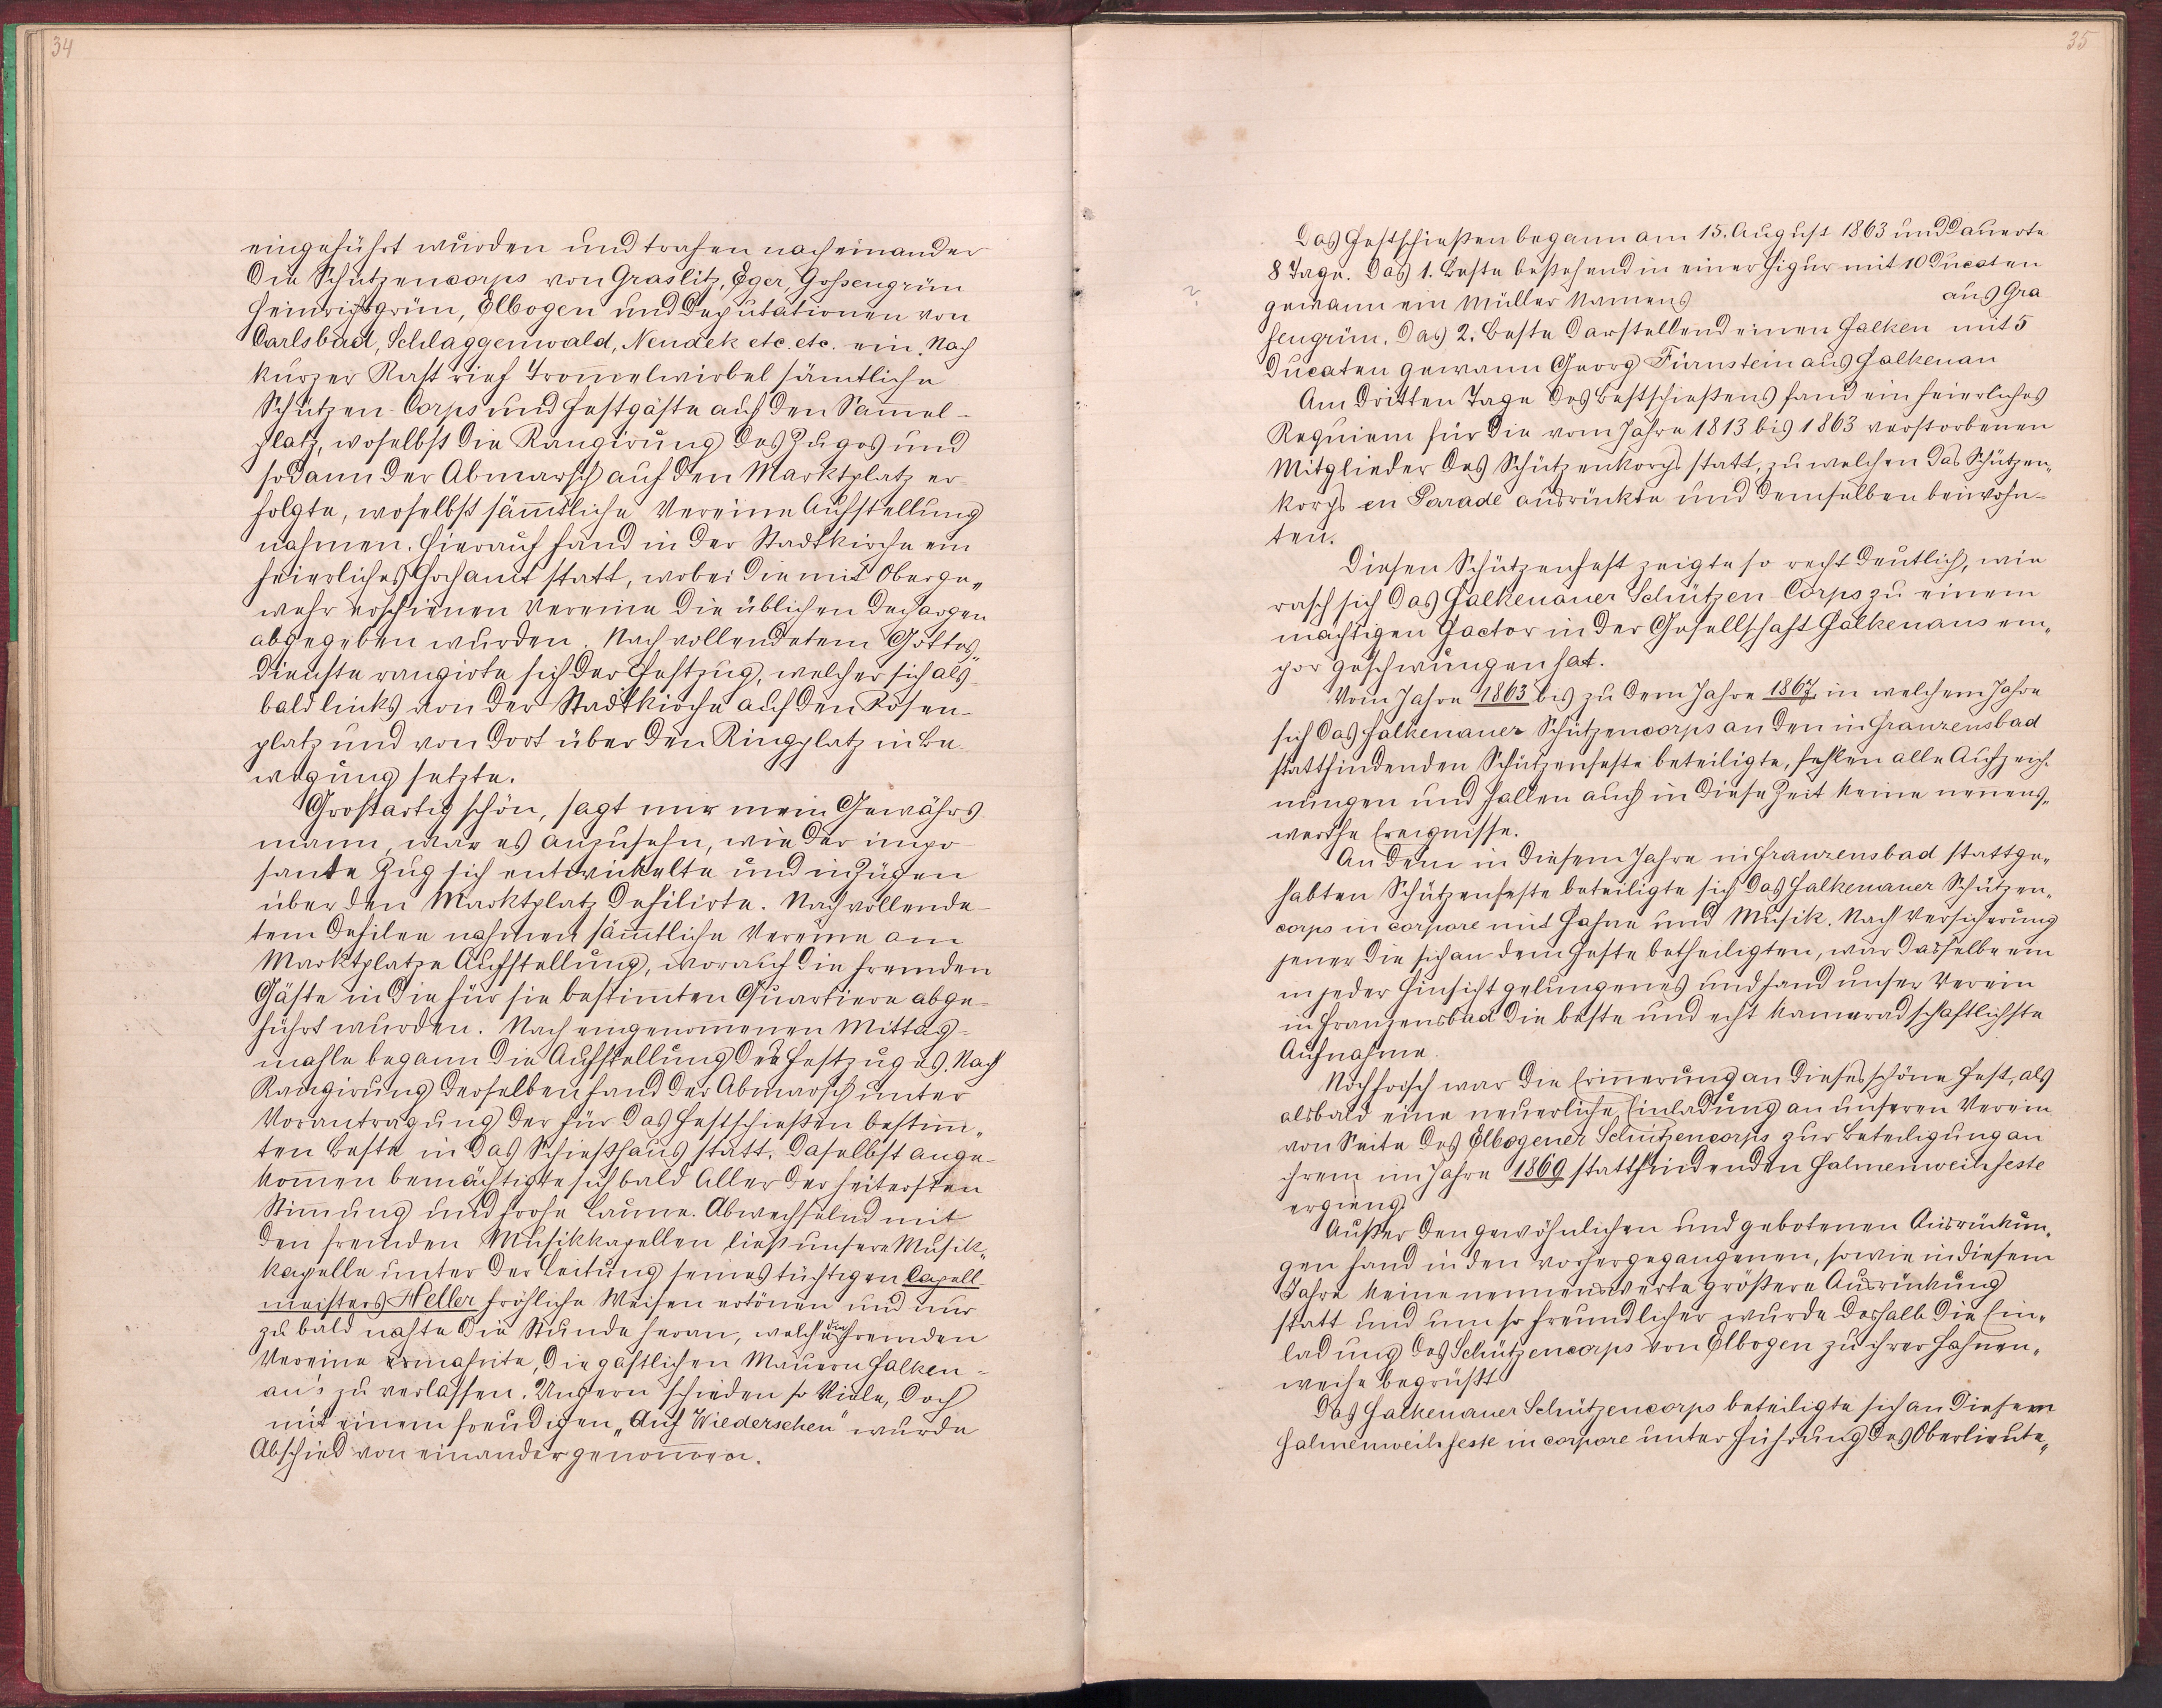 34
eingeführt wurden und trafen nach einander
die Schützencorps von Graslitz, Eger, Goßengrün
Heinrichsgrün, Elbogen und Deputationen von
Carlsbad, Schlaggenwald, Neudek etc. etc. ein. Nach
kurzer Rast rief Trom̅elwirbel sämtliche
Schützen-Corps und Festgäste auf den Sam̅el-
platz, woselbst die Rangirung des Zuges und
sodann der Abmarsch auf den Marktplatz er
folgte, woselbst säm̅tliche Vereine Aufstellung
nahmen. Hierauf fand in der Stadtkirche ein
feierliches Hochamt statt, wobei die mit Oberge„
wehr erschienen Vereine die üblichen Dechargen
abgegeben wurden. Nach vollendetem Gottes„
dienste rangirte sich der Festzug, welcher sich als
bald links von der Stadtkirche auf den Rosen-
platz und von dort über den Ringplatz in Be
wegung setzte.
Großartig schön, sagt mir mein Gewährs
mann, war es anzusehn, wie der impo
sante Zug sich entwickelte und in Zügen
über den Marktplatz defilirte. Nach vollende-
tem Defilee nahmen säm̅tliche Vereine am
Marktplatze Aufstellung, worauf die fremden
Gäste in die für sie bestim̅ten Quartiere abge-
führt wurden. Nach eingenom̅enen Mittag-
mahle begann die Aufstellung des Festzuges. Nach
Rangirung derselben fand der Abmarsch unter
Vorantragung der für das Festschießen bestim̅„
ten Beste in das Schießhaus statt. Daselbst ange-
kom̅en bemächtigte sich bald Aller der heitersten
Stim̅ung und frohe Laune. Abwechselnd mit
den fremden Musikkapellen ließ unsere Musik„
kapelle unter der Leitung seines tüchtigen Capell
meisters Heller fröhliche Weisen ertönen und nur
zu bald nahte die Stunde heran, welche die fremden
Vereine ermahnte, die gastlichen Mauern Falken-
au's zu verlassen. Ungern schieden so Viele, doch
mit einem freudigen „Auf Wiedersehen" wurde
Abschied von einander genom̅en.
35
Das Festschießen begann am 15. August 1863 und dauerte
8 Tage. Das 1. Beste bestehend in einer Figur mit 10 Ducaten
?
gewann ein Müller Namens aus Gra
sengrün. Das 2. Beste darstellend einen Falken mit 5
Ducaten gewann Georg Fürnstein aus Falkenau
Am dritten Tage des Bestschießens fand ein feierliches
Requiem für die vom Jahre 1813 bis 1863 verstorbenen
Mitglieder des Schützenkorps statt, zu welchen das Schützen„
korps en Parade ausrückte und demselben beiwohn-
ten.
Diesen Schützenfest zeigte so recht deutlich, wie
rasch sich das Falkenauer Schützen-Corps zu einem
mächtigen Factor in der Gesellschaft Falkenaus em„
por geschwungen hat.
Vom Jahre 1863 bis zu dem Jahre 1867 in welchem Jahre
sich das Falkenauer Schützencorps an den in Franzensbad
stattfindenden Schützenfeste beteiligte, fehlen alle Aufzeich-
nungen und fallen auch in diese Zeit keine nennens„
werthe Ereignisse.
An dem in diesem Jahre in Franzensbad stattge„
habten Schützenfeste beteiligte sich das Falkenauer Schützen„
corps in corpore mit Fahne und Musik. Nach Versicherung
jener die sich an dem Feste betheiligten, war dasselbe ein
in jeder Hinsicht gelungenes und fand unser Verein
in Franzensbad die beste und echt kameradschaftlichste
Aufnahme.
Noch frisch war die Erinnerung an dieses schöne Fest, als
alsbald eine neuerliche Einladung an unseren Verein
von Seite des Elbogener Schützencorps zur Beteiligung an
ihrem im Jahre 1869 stattfindenden Fahnenweihfeste
ergieng.
Außer den gewöhnlichen und gebotenen Ausrückun„
gen fand in den vorhergegangenen, sowie in diesem
Jahre keine nennenswerte größere Ausrückung
statt und um so freundlicher wurde deshalb die Ein„
ladung des Schützencorps von Elbogen zu ihrer Fahnen„
weihe begrüßt
Das Falkenauer Schützencorps beteiligte sich an diesem
Fahnenweihfeste in corpore unter Führung des Oberlieute„